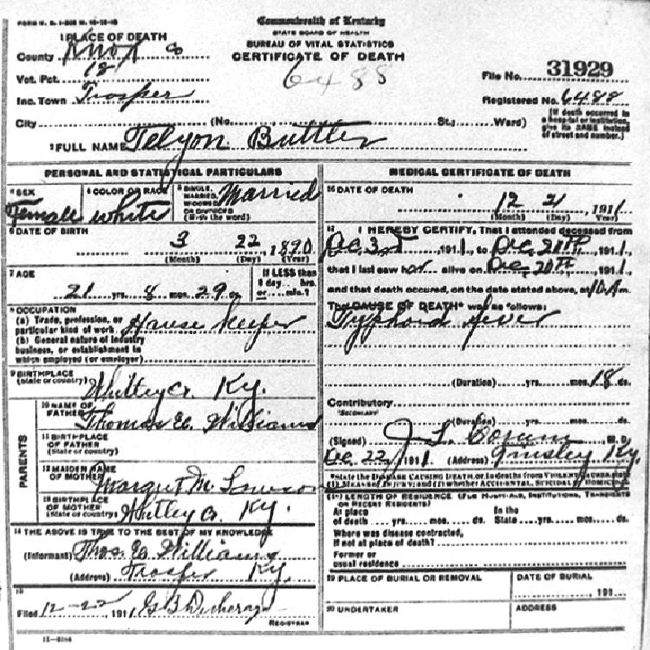 Commonwealth of Kentucky
STATE BOARD OF HEALTH
BUREAU OF VITAL STATISTICS
CERTIFICATE OF DEATH
1 PLACE OF DEATH
County Knox Co
Vot. Pct. 18
Inc. Town Trosper
City (No. St.; Ward)
6488
File No. 31929
Registered No. 6488
(If death occurred in a hospital or institution, give its NAME instead of street and number.)
FULL NAME Telyon Buttler
PERSONAL AND STATISTICAL PARTICULARS
SEX Female
COLOR OR RACE white
SINGLE, MARRIED, WIDOWED OR DIVORCED (Write the word) Married
DATE OF BIRTH
3 22 1890
(Month) (Day) (Year)
7 AGE
21 yrs. 8 mos. 29 ds
If LESS than 1 day hrs. or min.?
OCCUPATION
(a) Trade, profession, or particular kind of work House Keeper
(b) General nature of industry business, or establishment in which employed (or employer)
9 BIRTHPLACE
(State or country) Whitley Co Ky.
PARENTS
10 NAME OF FATHER Thomas E. Williams
11 BIRTHPLACE OF FATHER
(State or country)
12 MAIDEN NAME OF MOTHER Margret M Lawson
13 BIRTHPLACE OF MOTHER
(State or country) Whitley Co. Ky.
14 THE ABOVE IS TRUE TO THE BEST OF MY KNOWLEDGE
(Informant) Thos. E. Williams
(Address) Trosper Ky.
15
Filed 12-22 1911
REGISTRAR
MEDICAL CERTIFICATE OF DEATH
16 DATE OF DEATH
12 21 1911
(Month) (Day) (Year)
17 I HEREBY CERTIFY, That I attended deceased from
Dec 3 1911, to Dec. 20th 1911,
that I last saw her alive on Dec. 20th 1911,
and that death occured, on the date stated above, at
The CAUSE OF DEATH was as follows:
Typhoid fever
(Duration) yrs. mos. 18 ds.
Contributory
SECONDARY
(Duration) yrs. mos. ds.
(Signed) J. L. M. D.
Dec 22 1911 (Address) Ky.
State the DISEASE CAUSING DEATH, or in deaths from VIOLENT CAUSES, state (1) MEANS OF INJURY; and (2) whether ACCIDENTAL, SUICIDAL or HOMICIDAL
LENGTH OF RESIDENCE (FOR HOSPITALS, INSTITUTIONS, TRANSIENTS OR RECENT RESIDENTS)
At place of death yrs. mos. ds. In the State yrs. mos. ds.
Where was disease contracted, if not at place of death?
Former or usual residence
19 PLACE OF BURIAL OR REMOVAL
DATE OF BURIAL
191
20 UNDERTAKER
ADDRESS